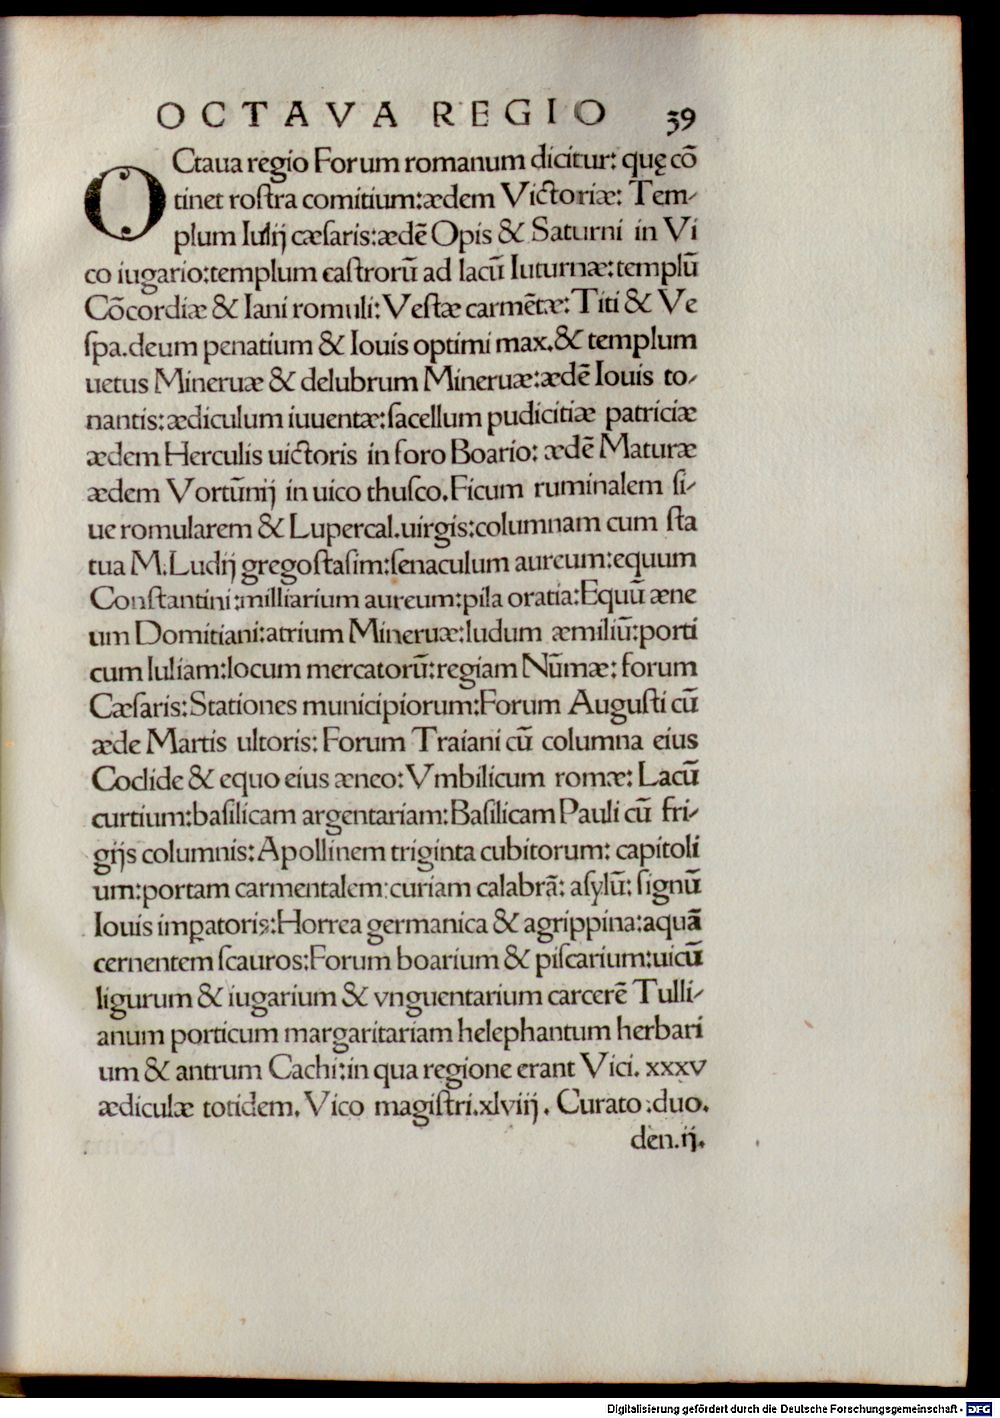 OCTAVA REGIO 39
OCtaua regio Forum romanum dicitur: quę cō
tinet roſtra comitium:ædem Victoriæ: Tem-
plum Iulij cæſaris:ædē Opis & Saturni in Vi
co iugario:templum caſtrorū ad lacū Iuturnæ:templū
Cōcordiæ & Iani romuli: Veſtæ carmētæ: Titi & Ve
ſpa.deum penatium & Iouis optimi max.& templum
uetus Mineruæ & delubrum Mineruæ:ædē Iouis to-
nantis:ædiculum iuuentæ:ſacellum pudicitiæ patriciæ
ædem Herculis uictoris in foro Boario: ædē Maturæ
ædem Vortūnij in uico thuſco.Ficum ruminalem ſi-
ue romularem & Lupercal.uirgis:columnam cum ſta
tua M.Ludij gregoſtaſim:ſenaculum aureum:equum
Conſtantini:milliarium aureum:pila oratia:Equū æne
um Domitiani:atrium Mineruæ:ludum æmiliū:porti
cum Iuliam:locum mercatorū:regiam Nūmæ: forum
Cæſaris:Stationes municipiorum:Forum Auguſti cū
æde Martis ultoris: Forum Traiani cū columna eius
Coclide & equo eius æneo: Vmbilicum romæ: Lacū
curtium:baſilicam argentariam:Baſilicam Pauli cū fri-
gijs columnis:Apollinem triginta cubitorum: capitoli
um:portam carmentalem:curiam calabrā: aſylū: ſignū
Iouis imꝑatoris:Horrea germanica & agrippina:aquā
cernentem ſcauros:Forum boarium & piſcarium:uicū
ligurum & iugarium & vnguentarium carcerē Tulli-
anum porticum margaritariam helephantum herbari
um & antrum Cachi:in qua regione erant Vici. xxxv
ædiculæ totidem. Vico magiſtri.xlviij. Curato.duo.
den.ij.
Digitalisierung gefördert durch die Deutsche Forschungsgemeinschaft - DFG